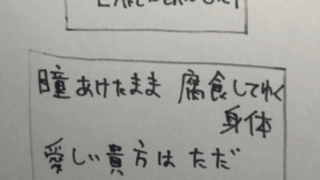 瞳あけたまま 腐食してゆく
身体
愛しい貴方は ただ